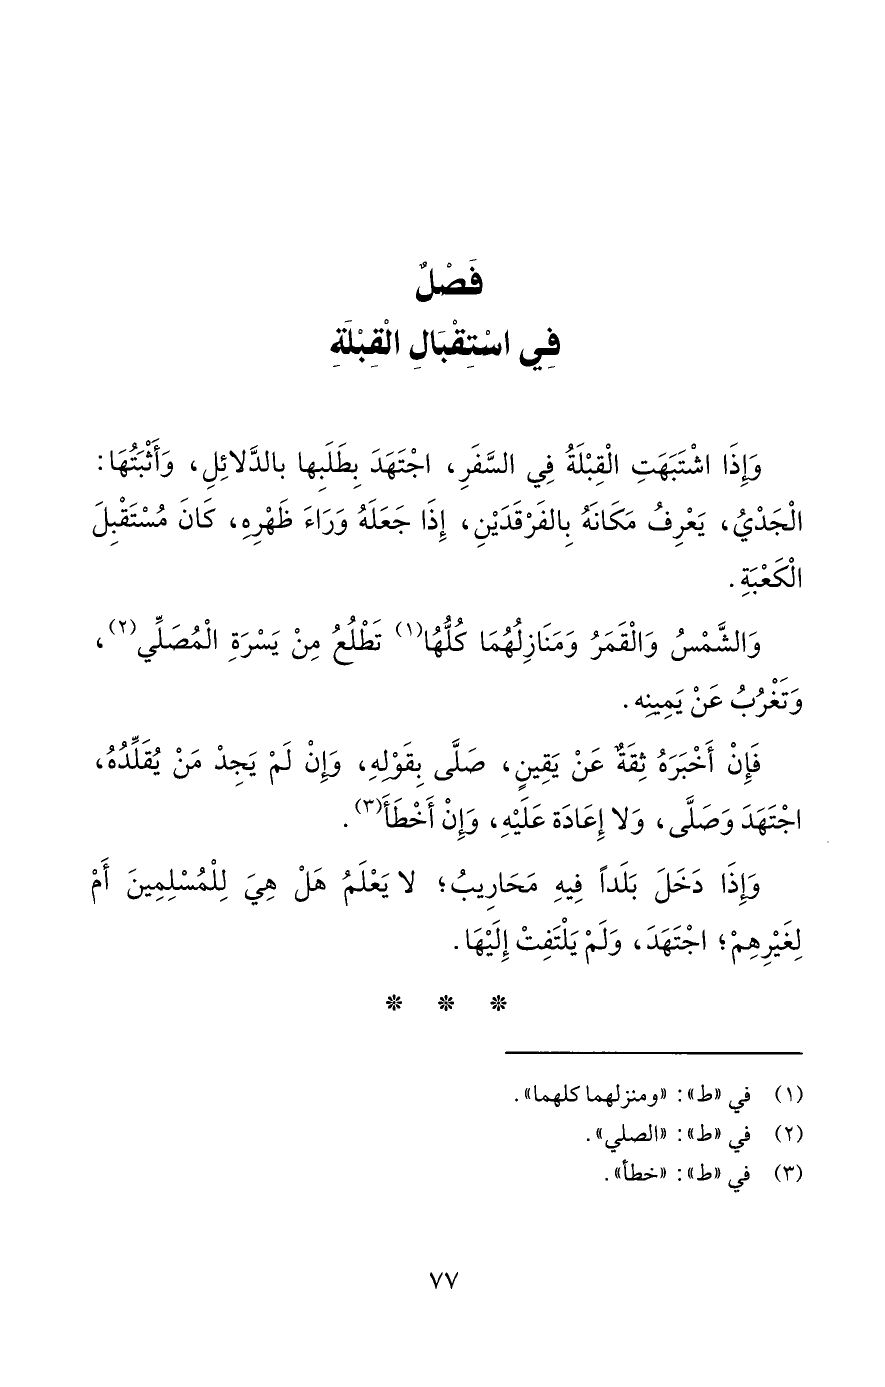 فَصْلٌ
فِي اسْتِقْبَالِ الْقِبْلَةِ
وَإِذَا اشْتَبَهَتِ الْقِبْلَةُ فِي السَّفَرِ، اجْتَهَدَ بِطَلَبِها بالدَّلائِلِ، وَأَثْبَتُهَا:
الْجَدْيُ، يَعْرِفُ مَكَانَهُ بِالفَرْقَدَيْنِ، إِذَا جَعَلَهُ وَرَاءَ ظَهْرِهِ، كَانَ مُسْتَقْبِلَ
الْكَعْبَةِ.
وَالشَّمْسُ وَالْقَمَرُ وَمَنَازِلُهُمَا كُلُّهَا(١) تَطْلُعُ مِنْ يَسْرَةِ الْمُصَلِّي(٢)،
وَتَغْرُبُ عَنْ يَمِينِه.
فَإِنْ أَخْبَرَهُ ثِقَةٌ عَنْ يَقِينٍ، صَلَّى بِقَوْلِهِ، وَإِنْ لَمْ يَجِدْ مَنْ يُقَلِّدُهُ،
اجْتَهَدَ وَصَلَّى، وَلا إِعَادَة عَلَيْهِ، وَإِنْ أَخْطَأَ(٣).
وَإِذَا دَخَلَ بَلَداً فِيهِ مَحَارِيبُ؛ لا يَعْلَمُ هَلْ هِيَ لِلْمُسْلِمِينَ أَمْ
لِغَيْرِهِمْ؛ اجْتَهَدَ، وَلَمْ يَلْتَفِتْ إِلَيْهَا.
* * *
(١) في «ط»: «ومنزلهما كلهما».
(٢) في «ط»: «الصلي».
(٣) في «ط»: «خطأ».
٧٧